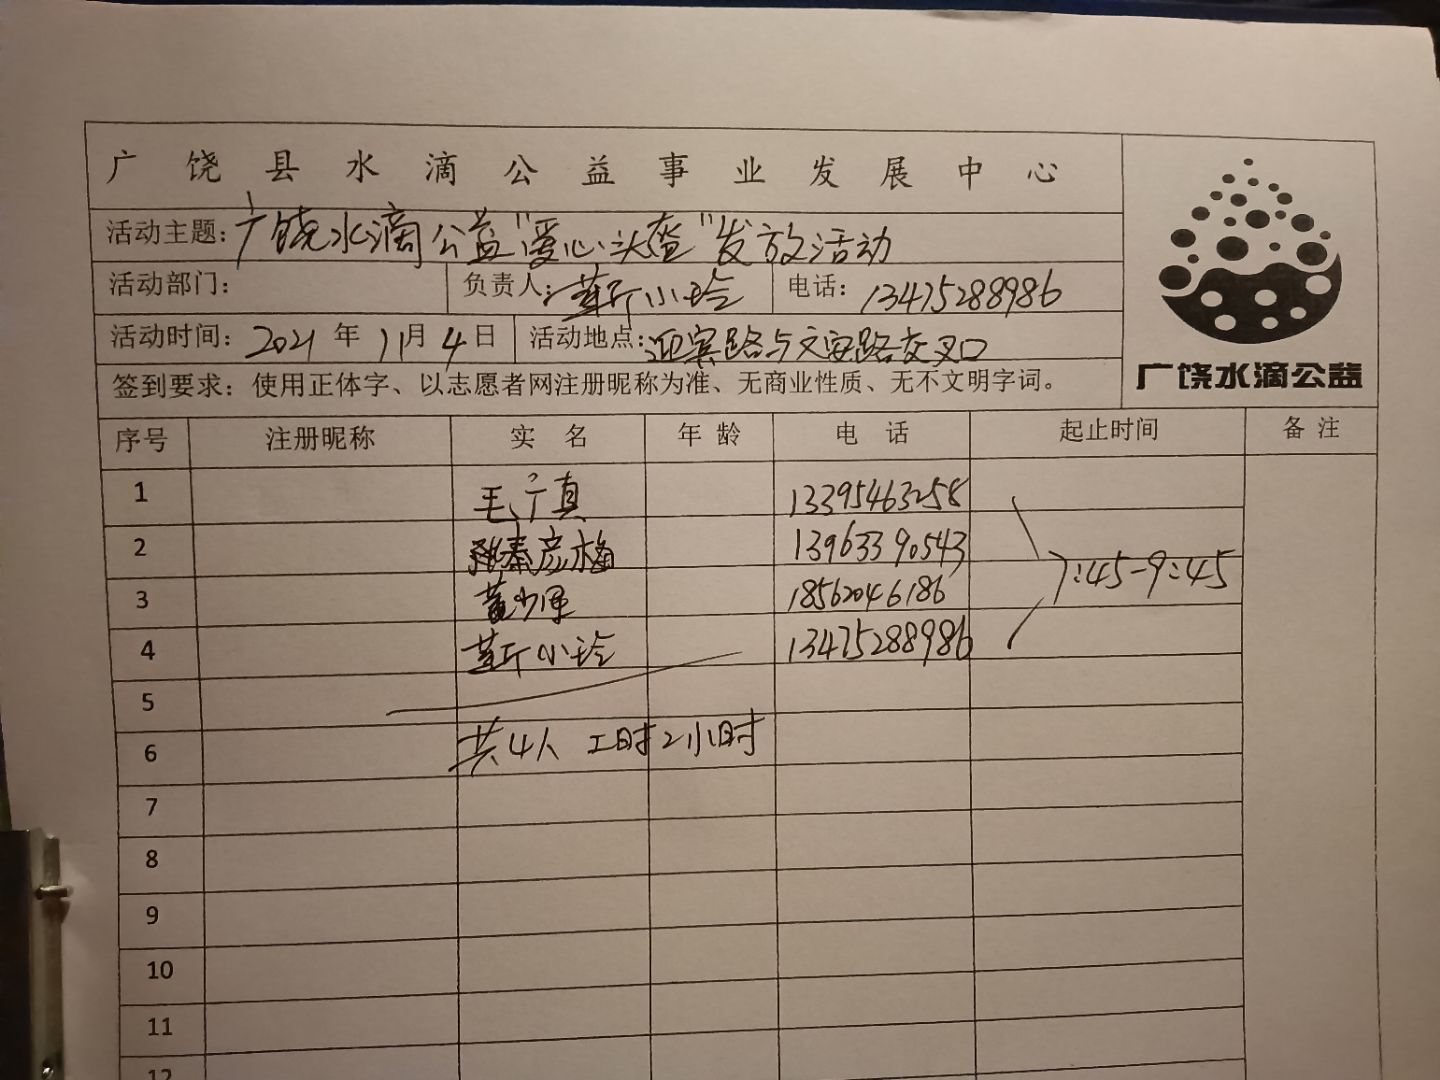 广饶县水滴公益事业发展中心
活动主题：广饶水滴公益“爱心头盔”发放活动
活动部门： 负责人：靳小玲 电话：13475288986
活动时间：2021年11月4日 活动地点：迎宾路与文安路交叉口
签到要求：使用正体字、以志愿者网注册昵称为准、无商业性质、无不文明字词。
广饶水滴公益
序号 注册昵称 实名 年龄 电话 起止时间 备注
1 毛宁真 13395463258
2 秦彦梅 13963390543
7:45-9:45
3 18562046186
4 靳小玲 13475288986
5
6 共4人 工时2小时
7
8
9
10
11
12